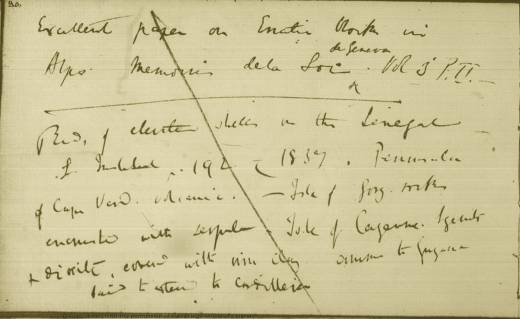 30.
Excellent paper on Erratic blocks in
Alps. Memoirs de la Soc de Geneva. Vol 3 P. II.
Beds of elevated shells on the Senegal
L'Institut. 192. 1837. Peninsula
of Cape Verd. volcanic. — Isle of rocks
encrusted with serpulae — Isle of Cayenne.
& diorite, covered with common to Guyana
said to extend to Cordilleras